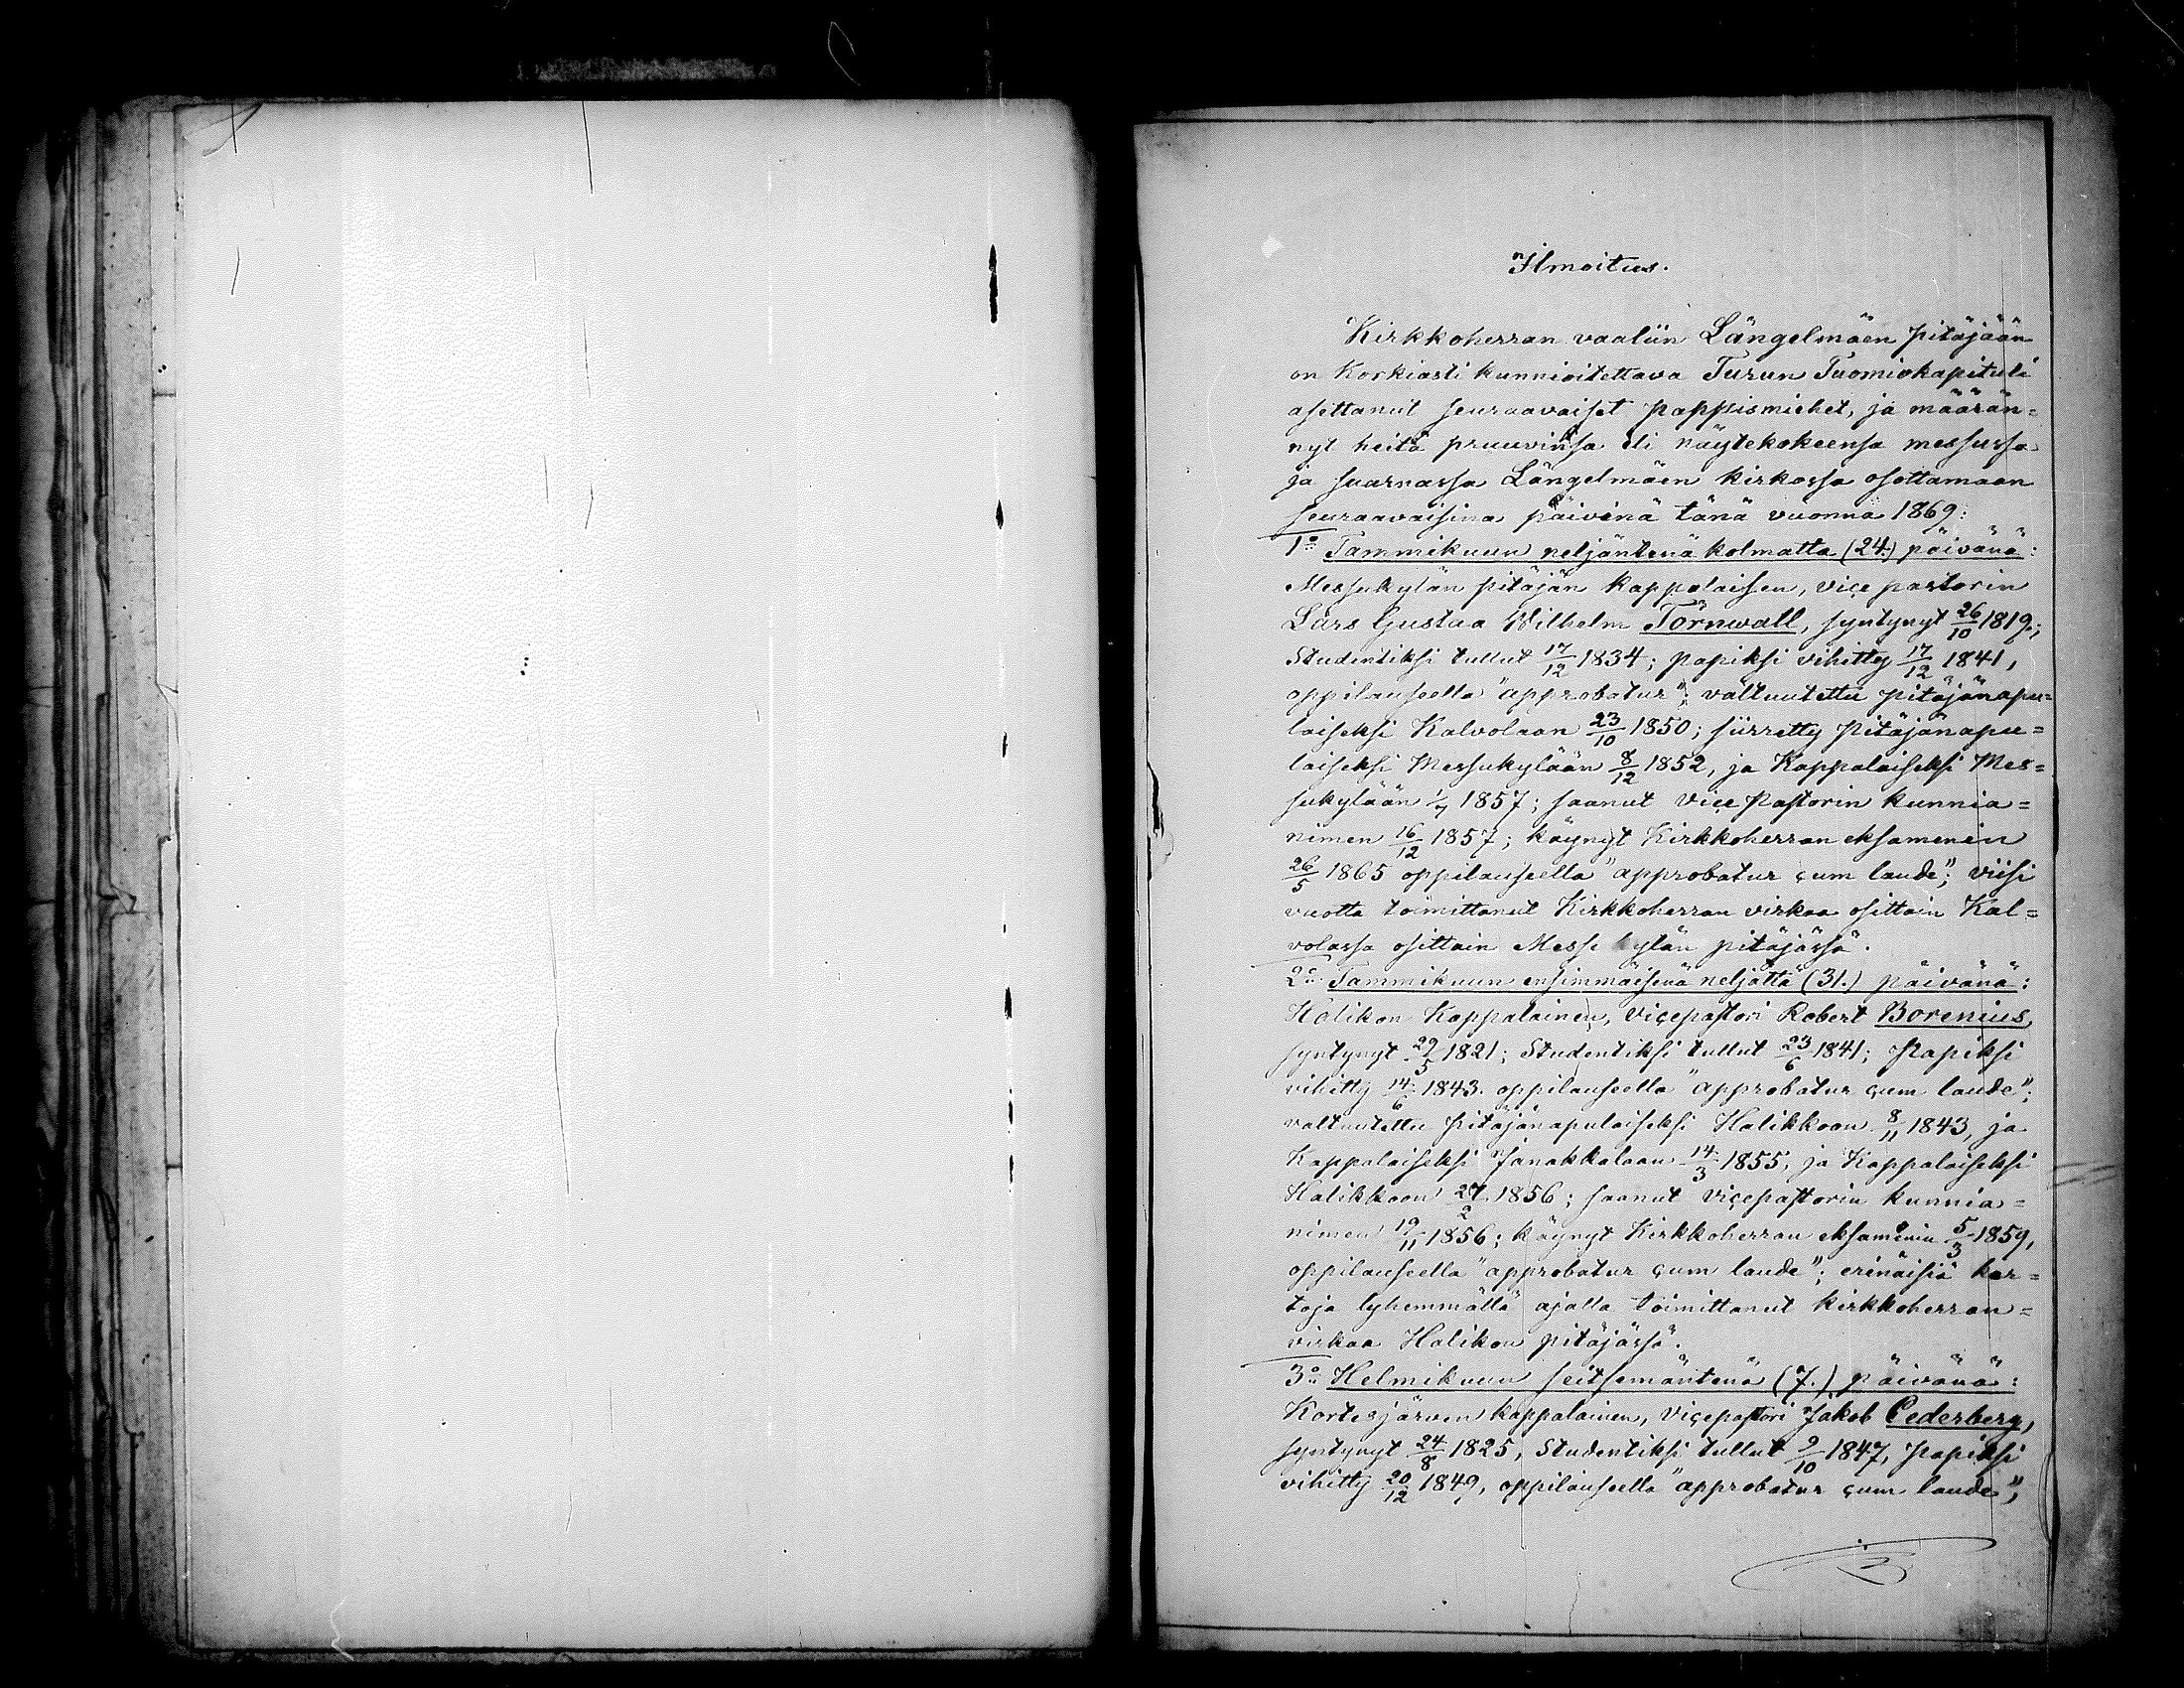 Ilmoitus.
Kirkkoherran vaaliin Längelmäen pitäjään
on Korkiasti kunnioitettava Turun Tuomiokapituli
asettanut seuraavaiset pappismiehet, ja määrän=
nyt heitä pruuvinsa eli näytekokeensa messussa
ja saarnassa Längelmäen kirkossa osottamaan
seuraavaisina päivinä tänä vuonna 1869:
1:o Tammikuun neljäntenä kolmatta (24.) päivänä:
Messukylän pitäjän kappalaisen, viçe pastorin
Lars Gustaa Wilhelm Törnwall, syntynyt 26/10 1819;
Studentiksi tullut 17/12 1834; papiksi vihitty 17/12 1841,
oppilauseella "approbatur"; valtuutettu pitäjänapu=
laiseksi Kalvolaan 23/10 1850; siirretty pitäjänapu=
laiseksi Messukylään 8/12 1852, ja Kappalaiseksi Mes=
sukylään 1/7 1857; saanut Viçe Pastorin kunnia=
nimen 16/12 1857; käynyt Kirkkoherran eksamenin
26/5 1865 oppilauseella "approbatur çum laude"; viisi
vuotta toimittanut Kirkkoherran virkaa osittain Kal=
volassa osittain Messukylän pitäjässä.
2:o Tammikuun ensimmäisenä neljättä (31.) päivänä:
Halikon Kappalainen, Viçepastori Robert Borenius,
syntynyt 29/5 1821; Studentiksi tullut 23/6 1841; Papiksi
vihitty 14/6 1843. oppilauseella "approbatur çum laude";
valtuutettu pitäjänapulaiseksi Halikkoon 8/11 1843, ja
Kappalaiseksi Janakkalaan 14/3 1855, ja Kappalaiseksi
Halikkoon 27/2 1856; saanut viçepastorin kunnia=
nimen 19/11 1856; käynyt Kirkkoherran eksamenin 5/3 1859,
oppilauseella "approbatur çum laude"; erinäisiä ker=
toja lyhemmällä ajalla toimittanut kirkkoherran=
virkaa Halikon pitäjässä.
3:o Helmikuun seitsemäntenä (7.) päivänä:
Kortesjärven kappalainen, Viçepastori Jakob Cederberg,
syntynyt 24/8 1825, Studentiksi tullut 9/10 1847, papiksi
vihitty 20/12 1849, oppilauseella "approbatur çum laude",